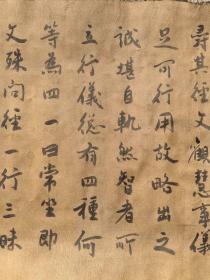 尋其經文觀慧事儀
足可行用故略出之
誠堪自軌然智者所
立行儀總有四種何
等為四一曰常坐即
文殊問經一行三昧